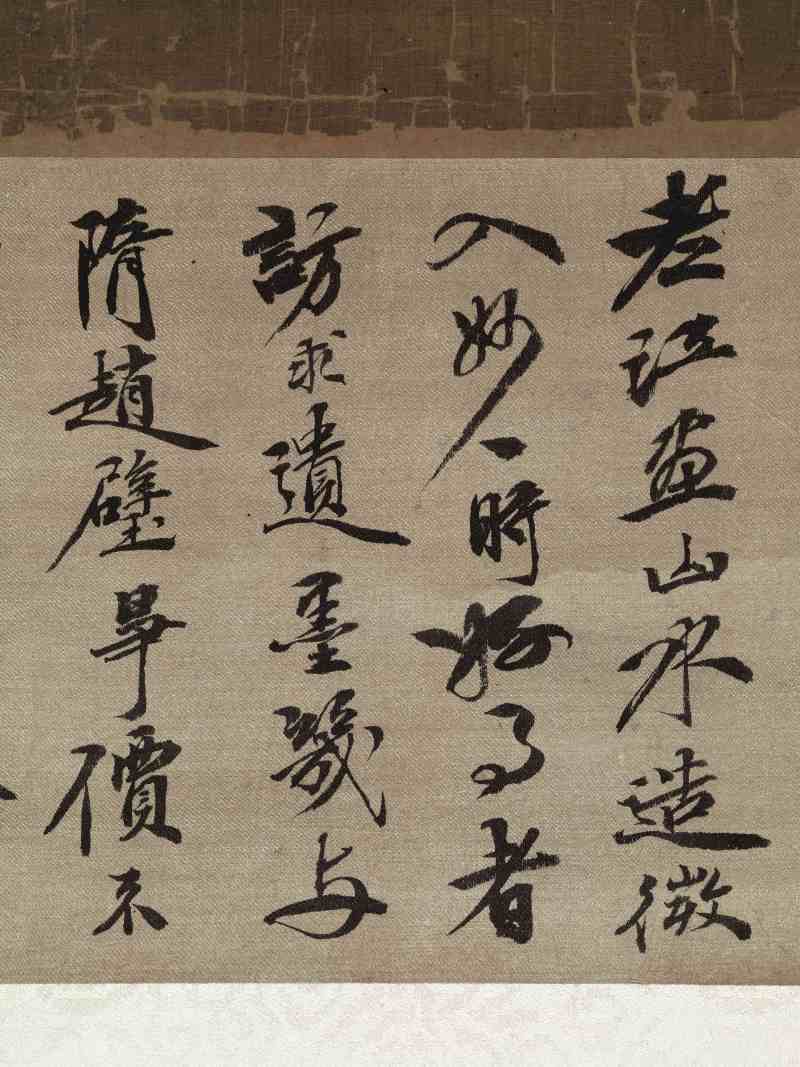 老江畫山水造微
入妙一時好事者
訪求遺墨幾与
隋趙璧爭價不